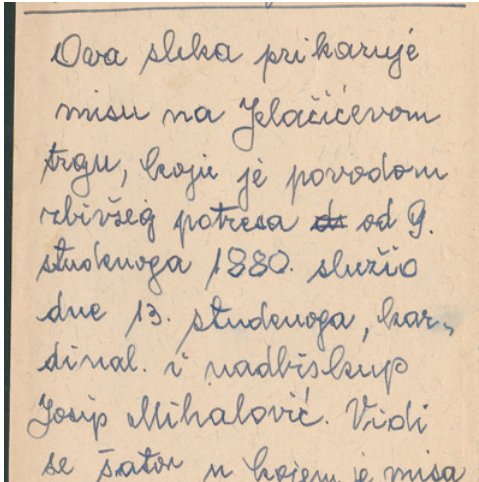 Ova slika prikazuje
misu na Jelačićevom
trgu, koju je povodom
zbivšeg potresa ~~do~~ od 9.
studenoga 1880. služio
dne 13. studenoga, kar-
dinal. i nadbiskup
Josip Mihalović. Vidi
se šator u kojem je misa